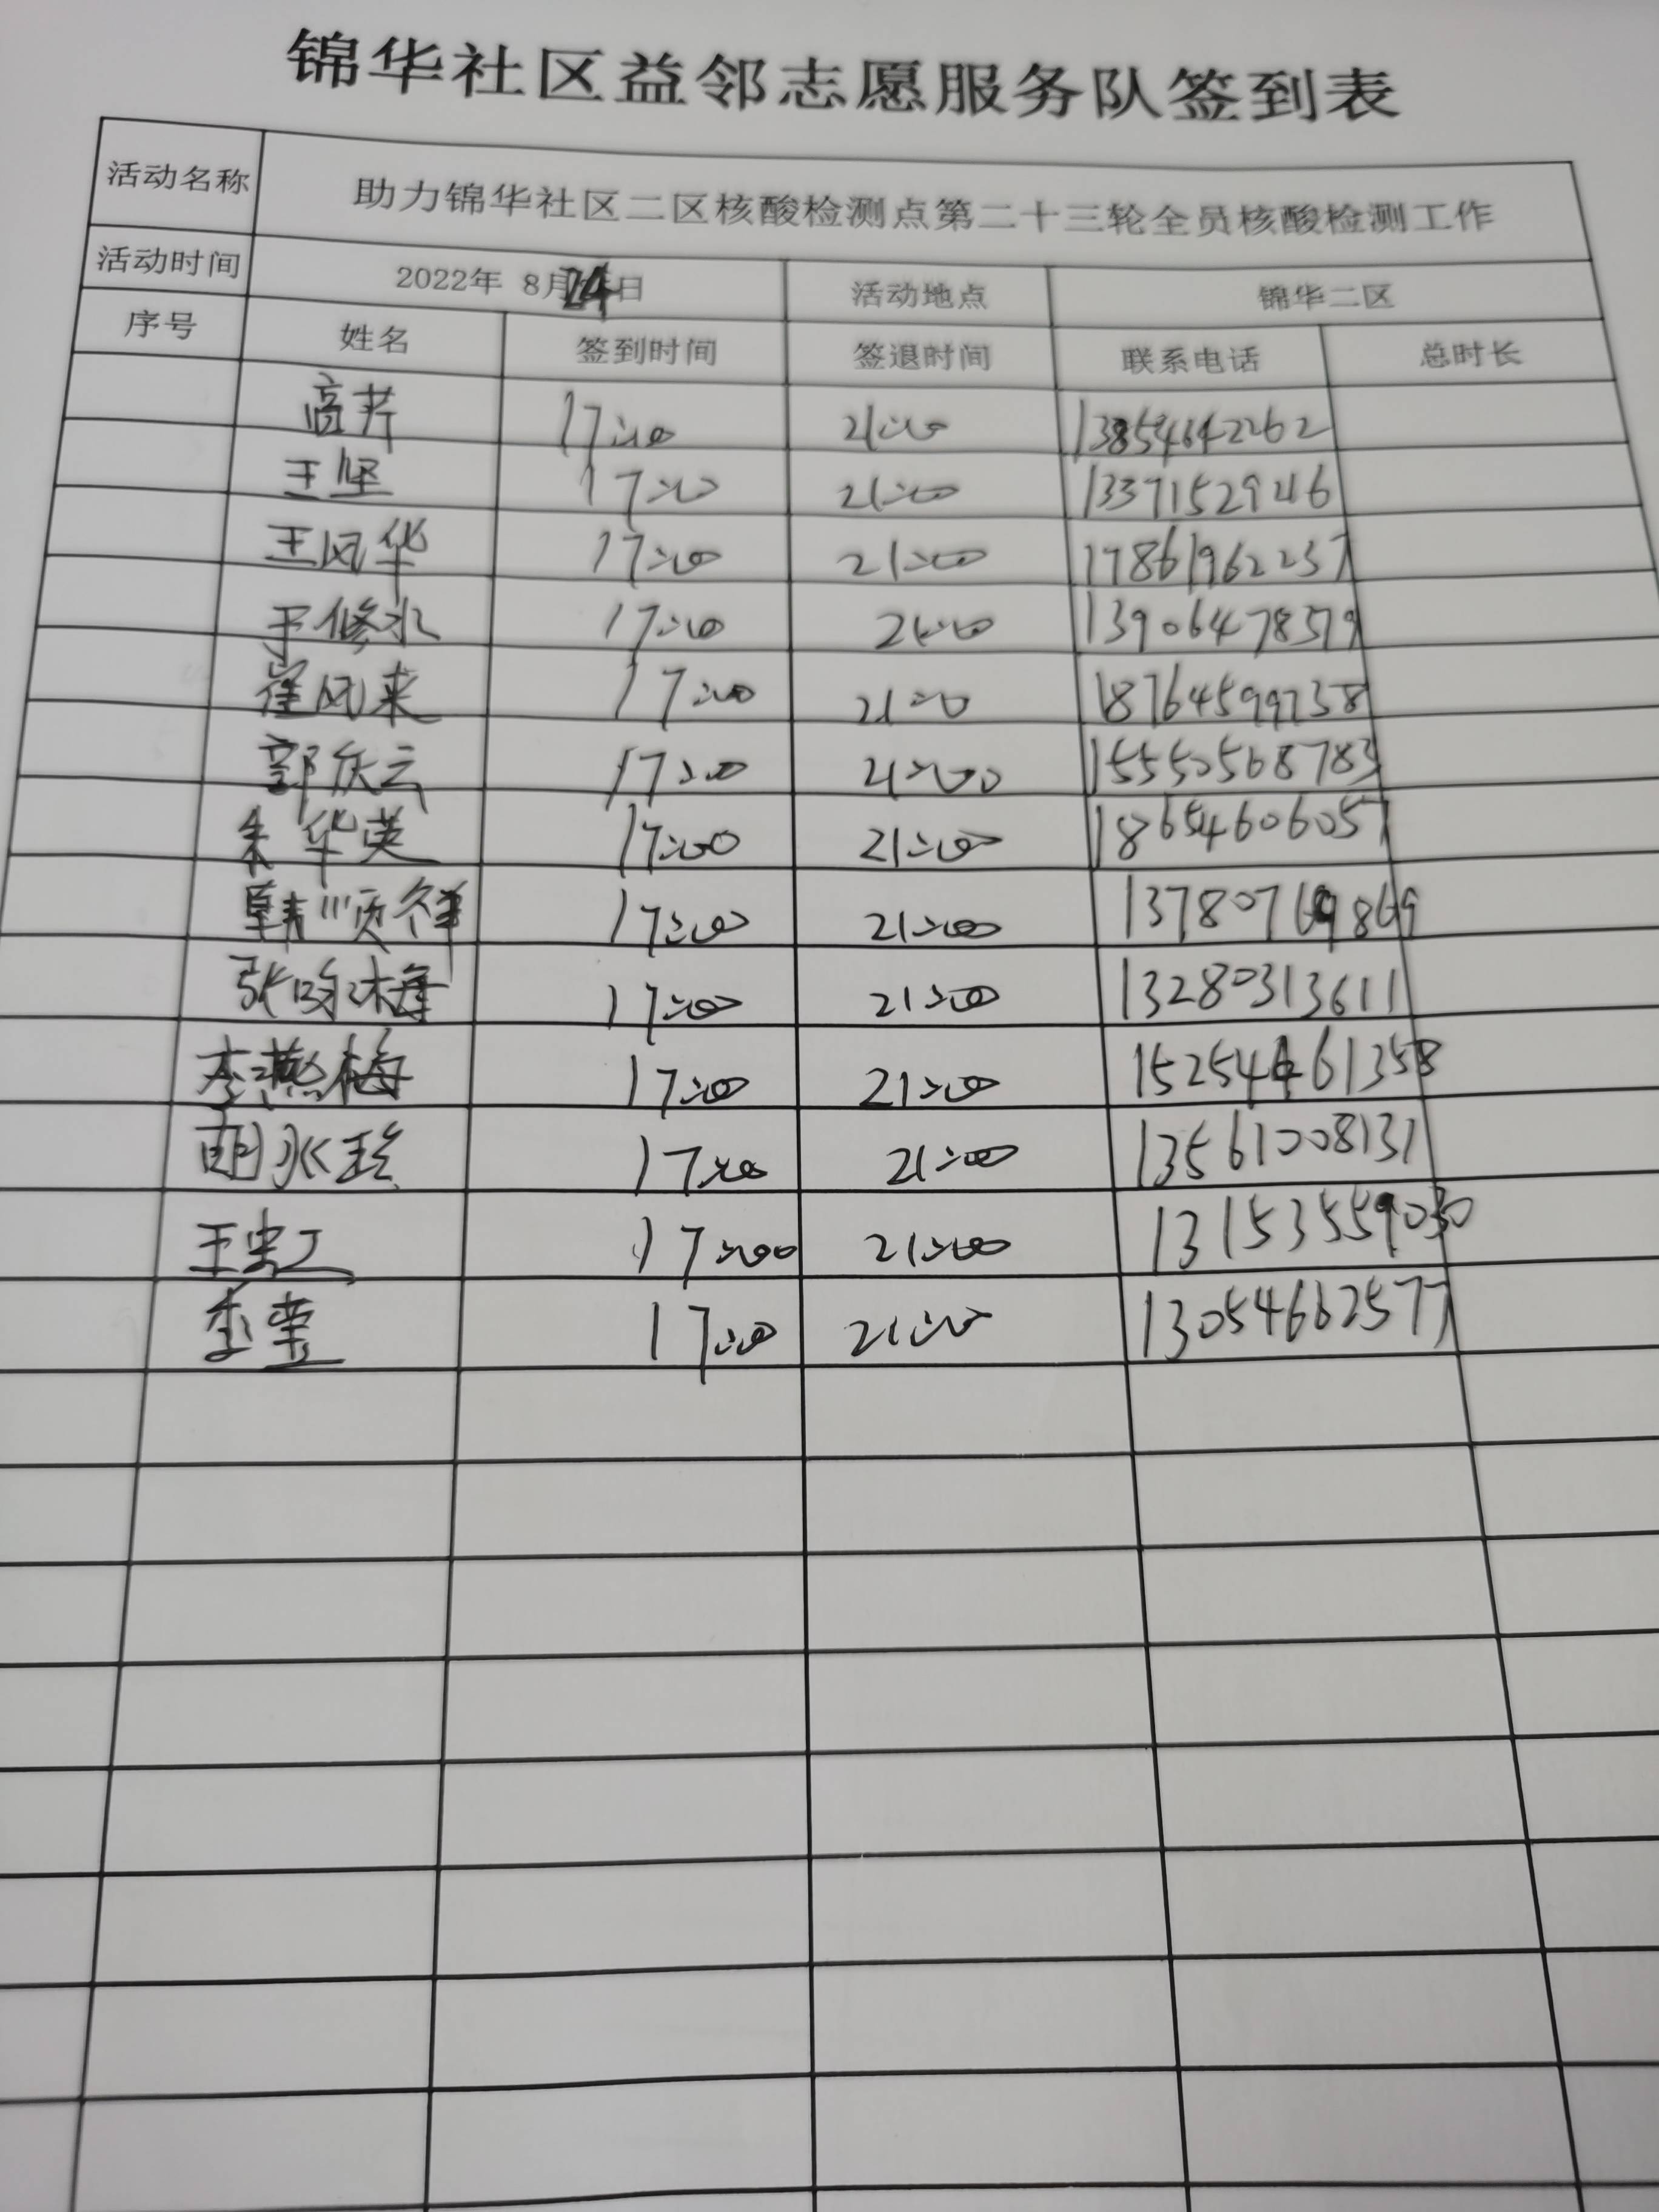 锦华社区益邻志愿服务队签到表
活动名称 助力锦华社区二区核酸检测点第二十三轮全员核酸检测工作
活动时间 2022年 8月24日 活动地点 锦华二区
序号 姓名 签到时间 签退时间 联系电话 总时长
高芹 17:00 21:00 13854642262
王坚 17:00 21:00 13371529446
王风华 17:00 21:00 17861962237
于修水 17:00 21:00 13906478579
崔风来 17:00 21:00 18764599738
郭庆云 17:00 21:00 15550568783
朱华英 17:00 21:00 18654606057
韩顺祥 17:00 21:00 13780769869
张咏梅 17:00 21:00 13280313611
李燕梅 17:00 21:00 15254461358
明永珍 17:00 21:00 13561008131
王忠工 17:00 21:00 13153559030
李莹 17:00 21:00 13054662577